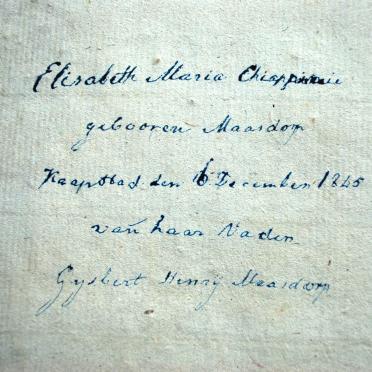 Elisabeth Maria Chiappinie
gebooren Maasdorp
Kaapstad den 6 December 1845
van haar Vader
Gysbert Henry Maasdorp